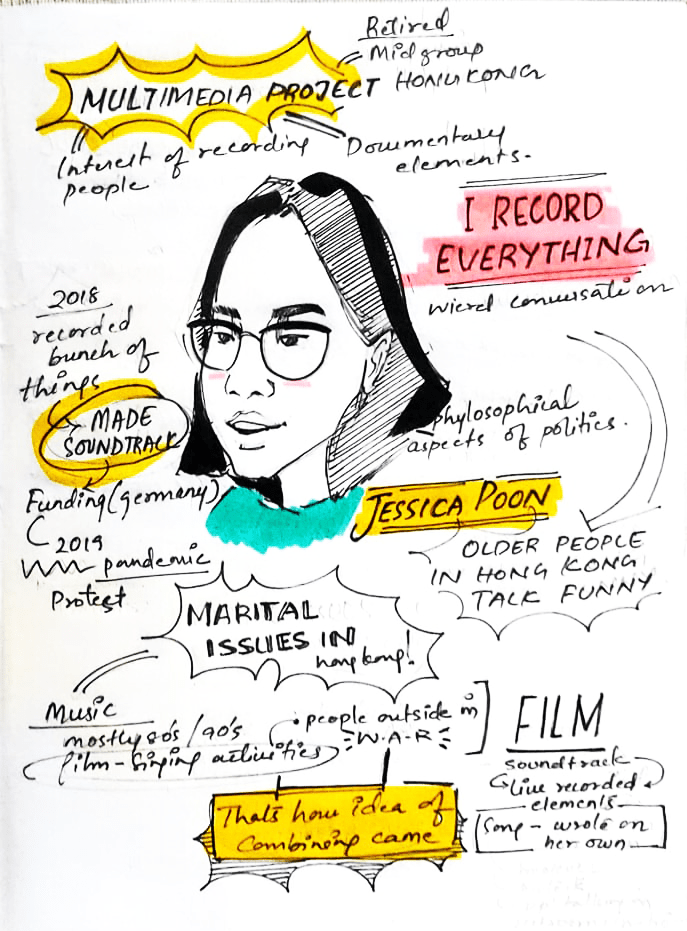 Retired
Midgroup
HONGKONG
MULTIMEDIA PROJECT
Interest of recording
people
Documentary
elements.
I RECORD
EVERYTHING
wierd conversation
2018
recorded
bunch of
things
MADE
SOUNDTRACK
Funding (germany)
2019
pandemic
Protest
phylosophical
aspects of politics.
JESSICA POON
OLDER PEOPLE
IN HONG KONG
TALK FUNNY
MARITAL
ISSUES IN
hongkong!
Music
mostly 80's/90's
film - singing activities
• people outside in
W.A.R
FILM
soundtrack
live recorded
elements
Song - wrote on
her own
Thats how idea of
combining came